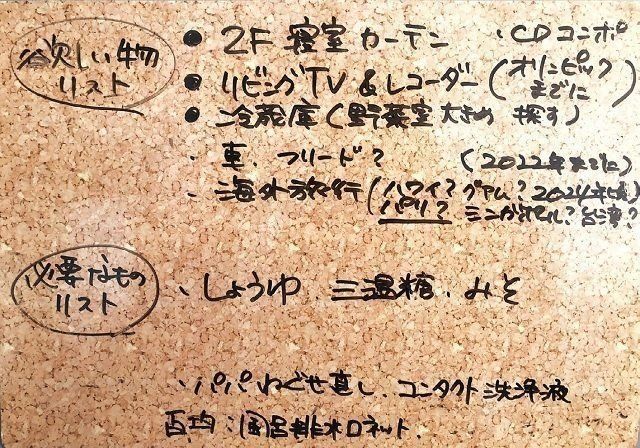 欲しい物
リスト
● 2F 寝室 カーテン ・CDコンポ
● リビングTV & レコーダー (オリンピックまでに)
● 冷蔵庫 (野菜室大きめ 探す)
・車、フリード? (2022年までに)
・海外旅行 (ハワイ? グアム? 2024年頃)
パリ? シンガポール? 台湾?
必要なもの
リスト
・しょうゆ、三温糖、みそ
・パパねぐせ直し、コンタクト洗浄液
百均:風呂排水口ネット、